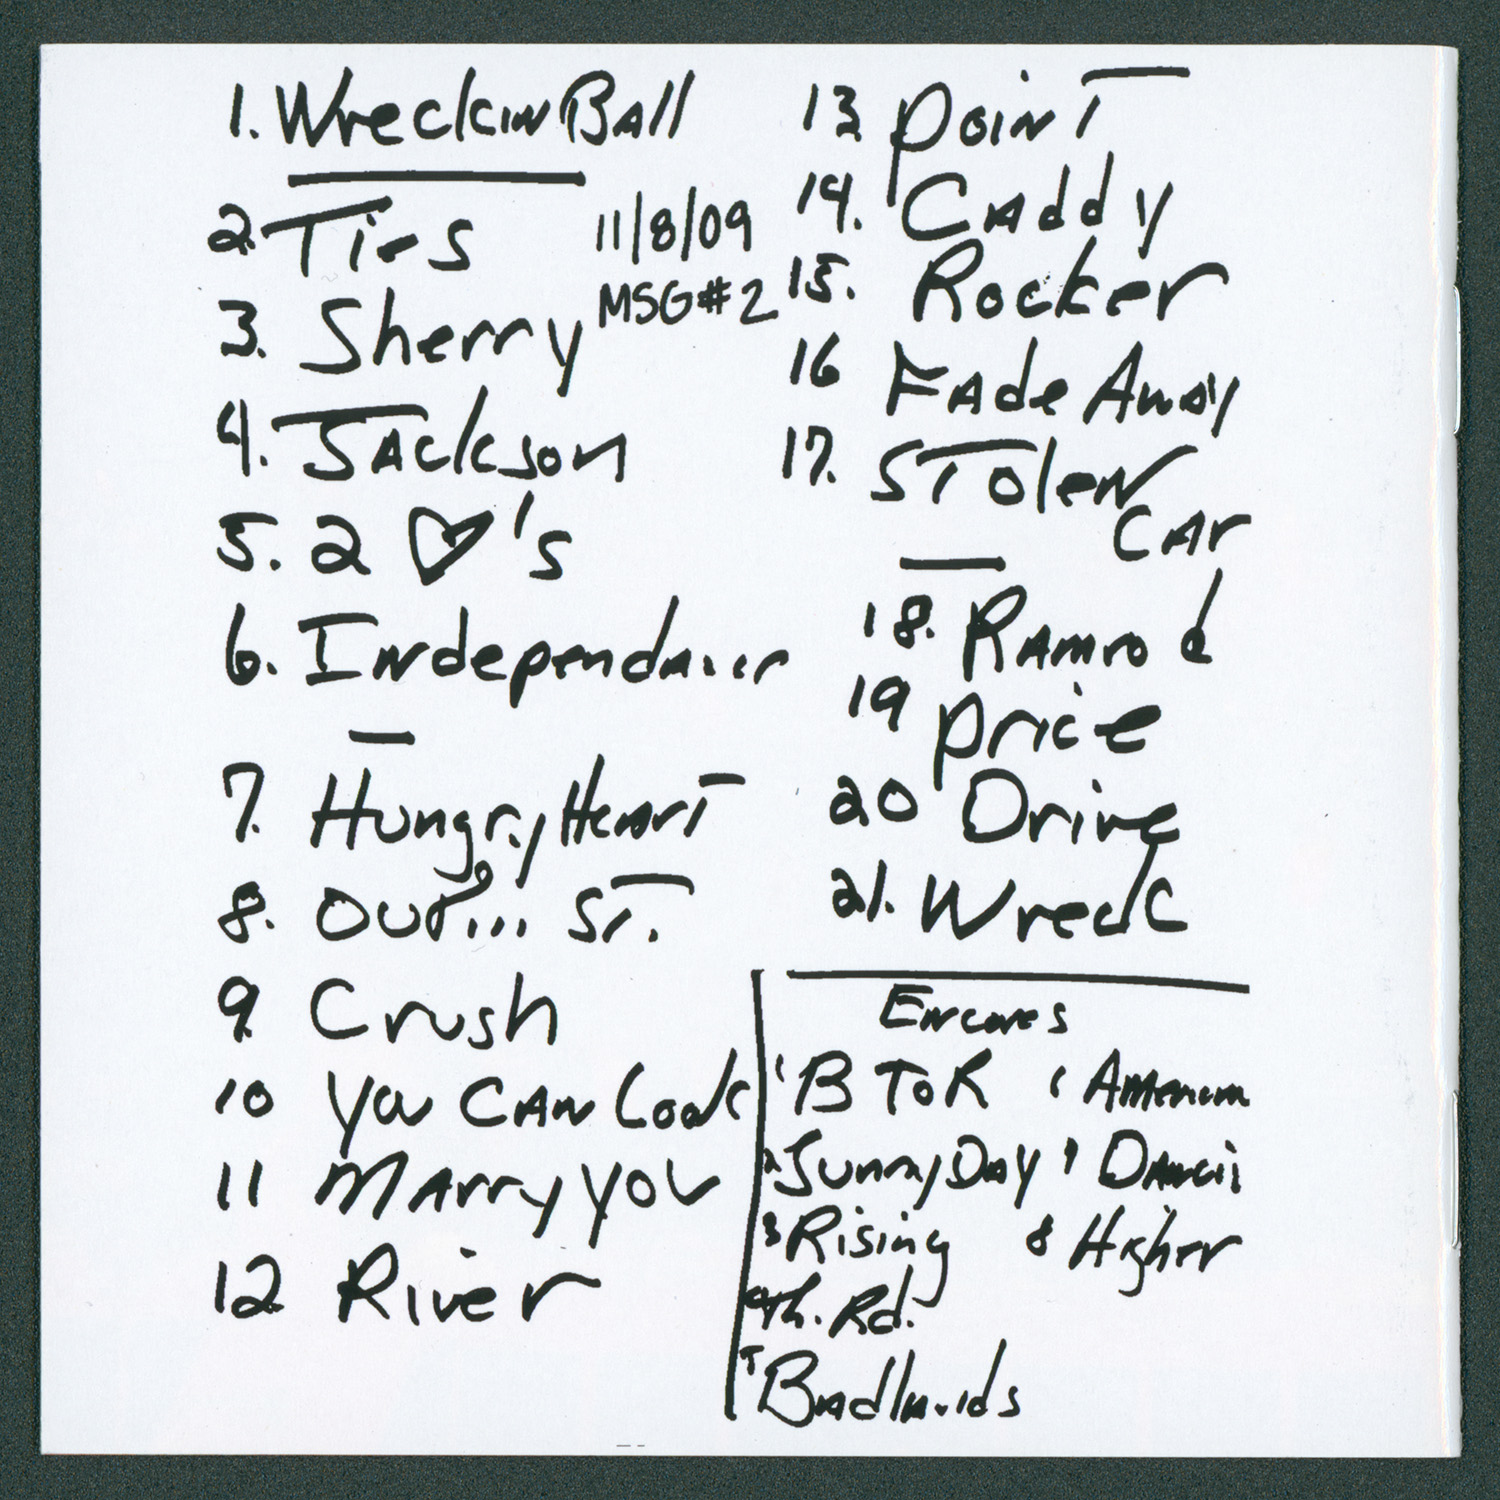 1. Wreckin Ball
2. Ties
11/8/09
MSG#2
3. Sherry
4. Jackson
5. 2 ♡'s
6. Independance
7. Hungry Heart
8. Out... St.
9. Crush
10 You Can Look
11 Marry You
12. River
13. Point
14. Caddy
15. Rocker
16 Fade Away
17. Stolen
Car
18. Ramrod
19 Price
20 Drive
21. Wreck
Encores
1 B To R
2 Sunny Day
3 Rising
4 Th. Rd.
5 Badlands
American
Dancin
8 Higher